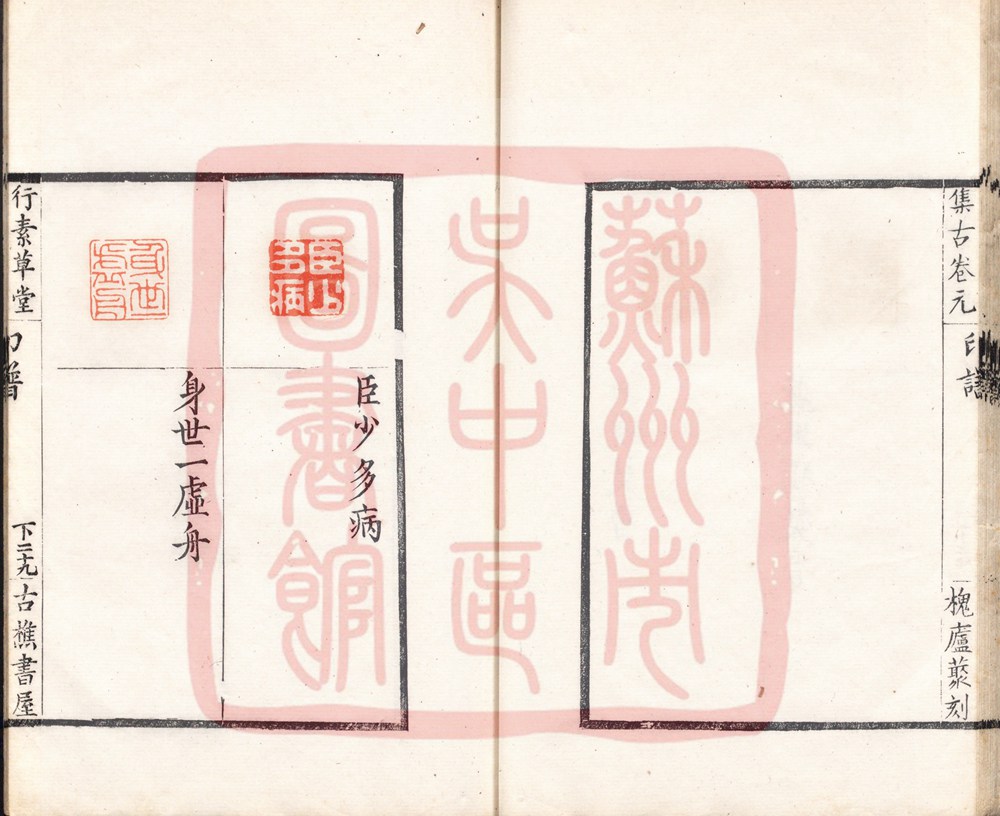 集古卷元
印譜
槐廬叢刻
臣少多病
臣少多病
身世一虛舟
身世一虛舟
行素草堂
印譜
下二十九
古樵書屋
蘇州市
吳中區
圖書館